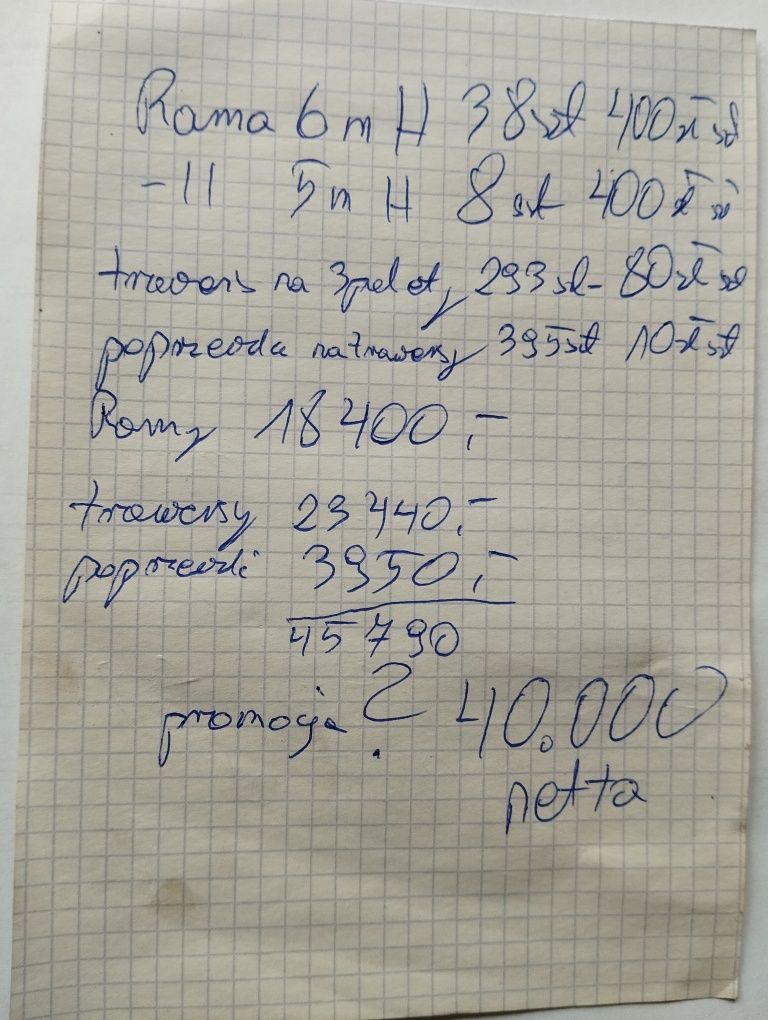 Rama 6m H 38szt 400zł szt
-11 5m H 8szt 400zł szt
trawers na 3palety 293szt- 80zł szt
poprzeczka na trawersy 395szt 10zł szt
Ramy 18400,-
trawersy 23440,-
poprzeczki 3950,-
45790
promocja ? 40.000
netto